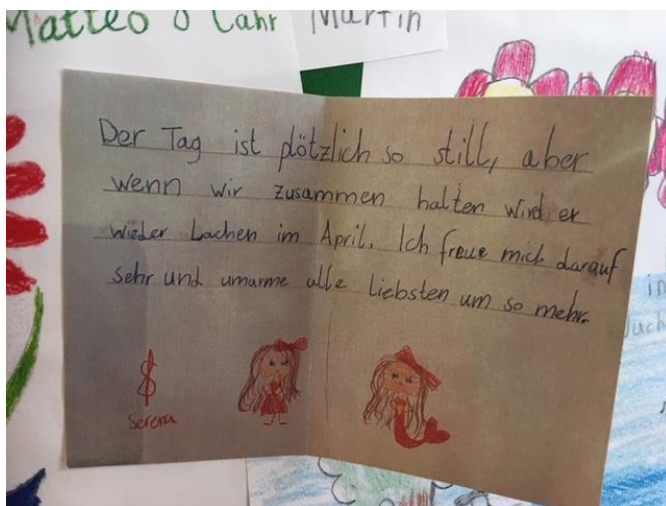 Matteo 8 Jahr
Martin
Der Tag ist plötzlich so still, aber
wenn wir zusammen halten wird er
wieder Lachen im April. Ich freue mich darauf
sehr und umarme alle liebsten um so mehr.
Serena